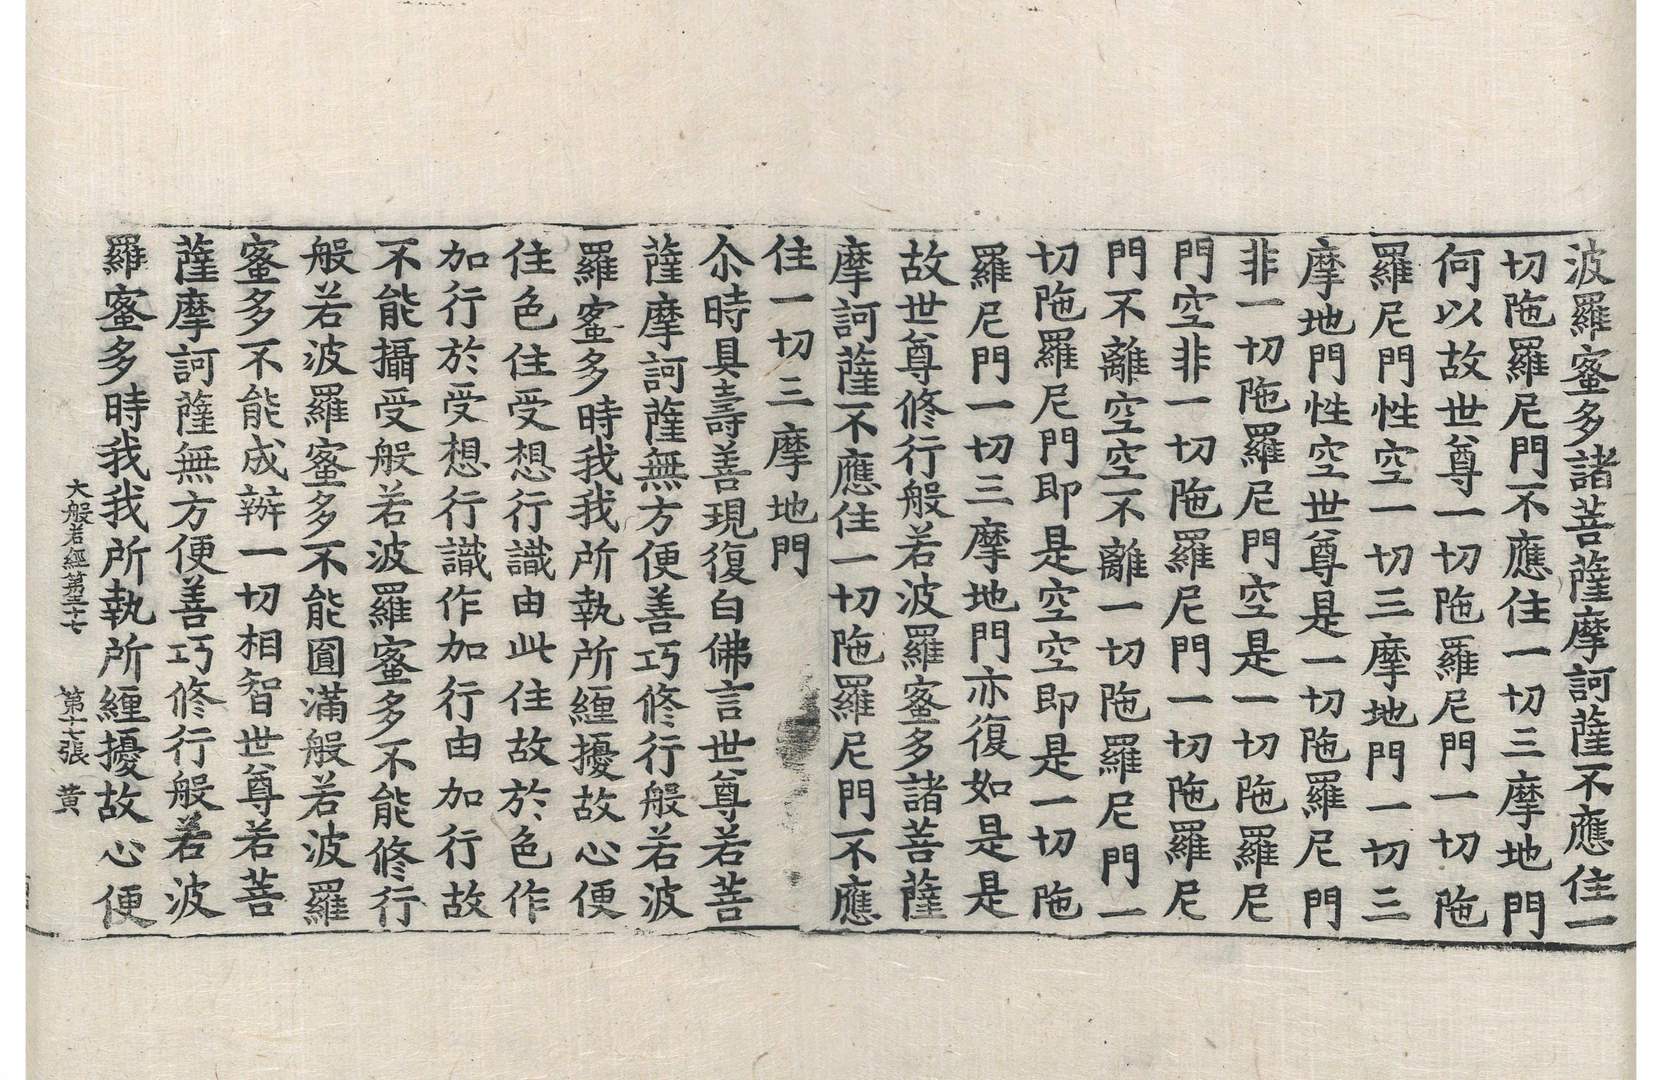 波羅蜜多諸菩薩摩訶薩不應住一
切陁羅尼門不應住一切三摩地門
何以故世尊一切陁羅尼門一切陁
羅尼門性空一切三摩地門一切三
摩地門性空世尊是一切陁羅尼門
非一切陁羅尼門空是一切陁羅尼
門空非一切陁羅尼門一切陁羅尼
門不離空空不離一切陁羅尼門一
切陁羅尼門即是空空即是一切陁
羅尼門一切三摩地門亦復如是是
故世尊修行般若波羅蜜多諸菩薩
摩訶薩不應住一切陁羅尼門不應
住一切三摩地門
尒時具壽善現復白佛言世尊若菩
薩摩訶薩無方便善巧修行般若波
羅蜜多時我我所執所纏擾故心便
住色住受想行識由此住故於色作
加行於受想行識作加行由加行故
不能攝受般若波羅蜜多不能修行
般若波羅蜜多不能圓滿般若波羅
蜜多不能成辦一切相智世尊若菩
薩摩訶薩無方便善巧修行般若波
羅蜜多時我我所執所纏擾故心便
大般若經第三十七 第十七張 黄